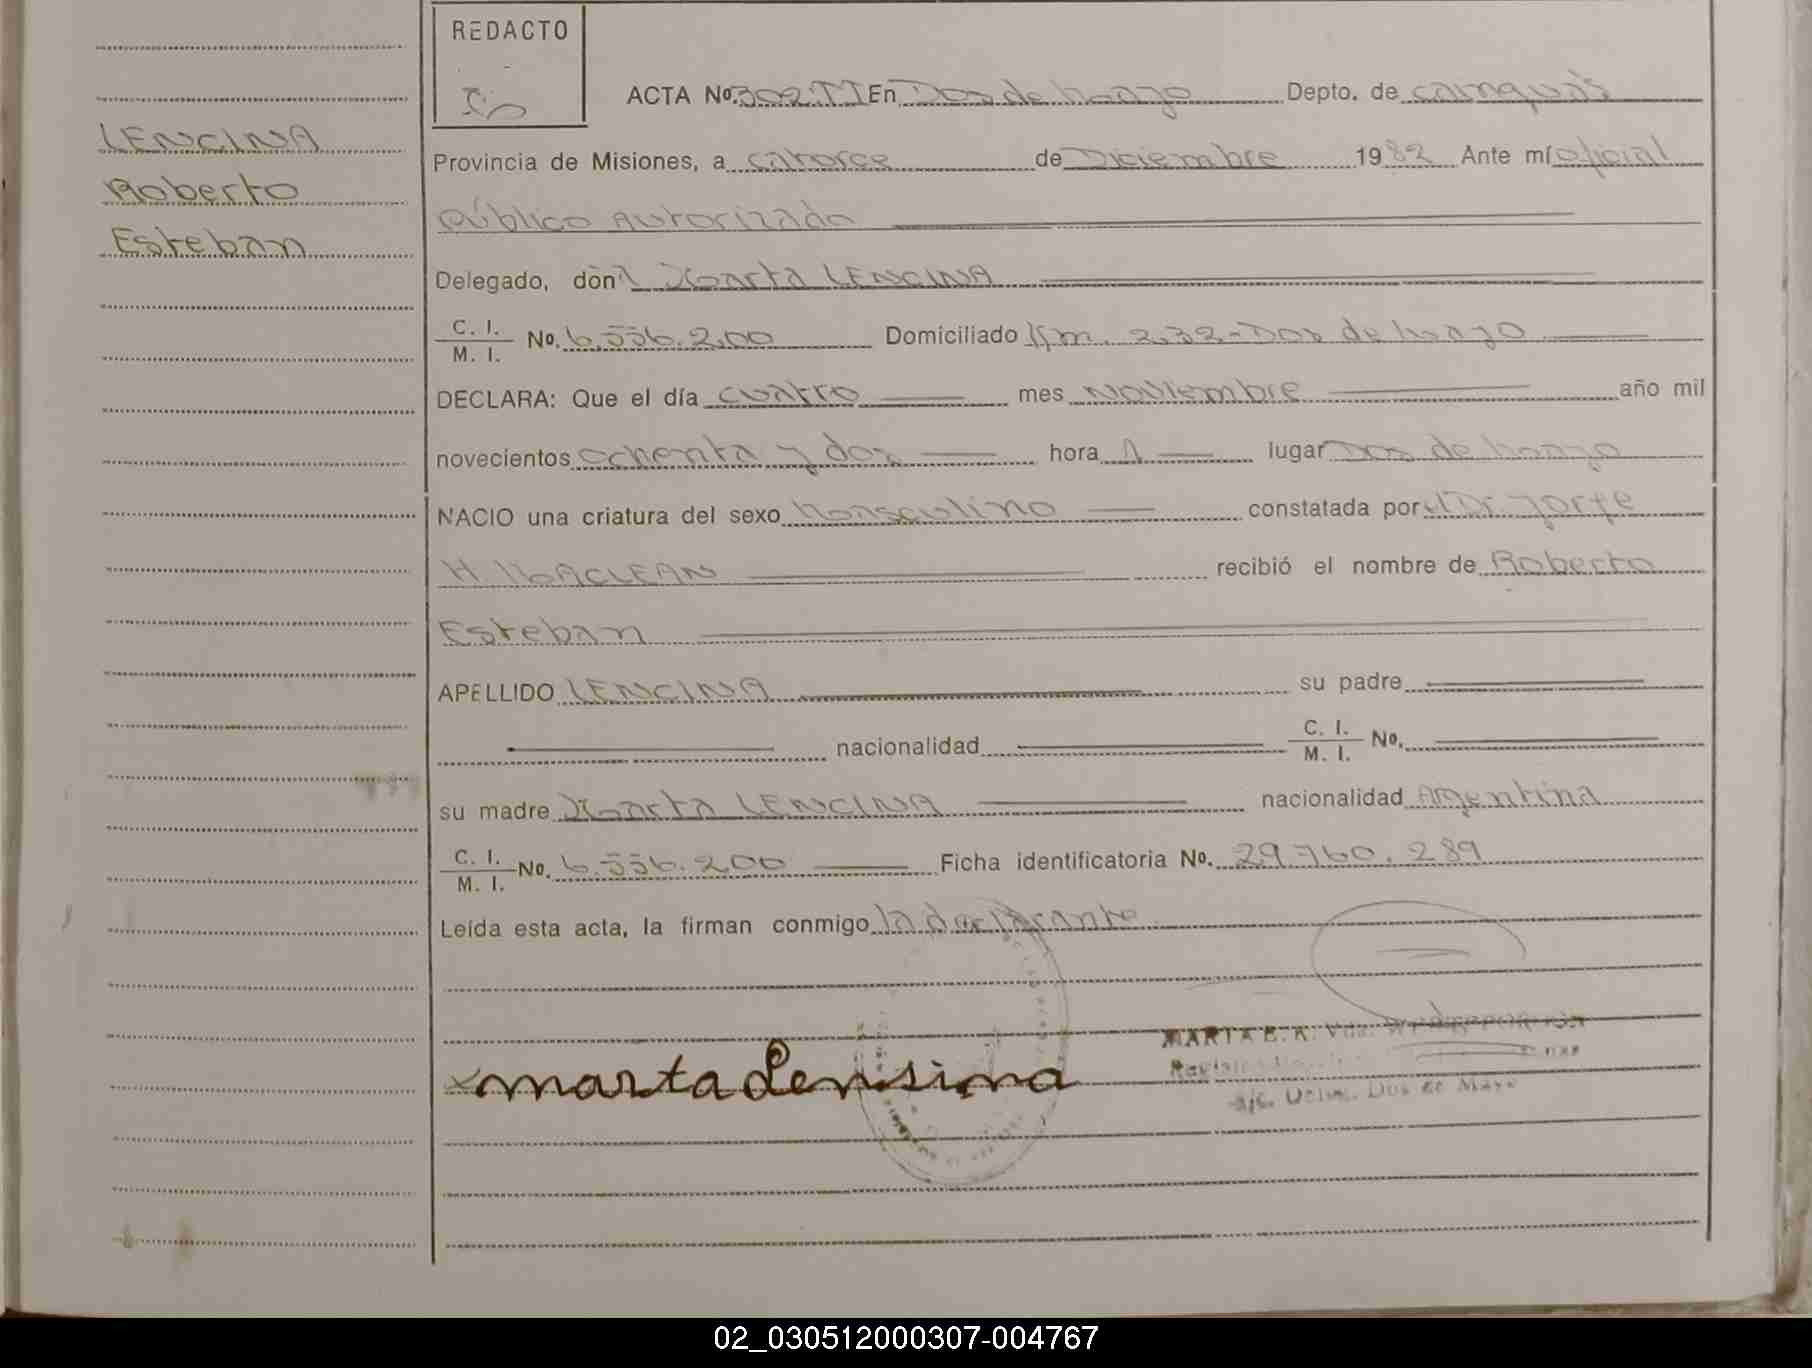 LENCINA
Roberto
Esteban
REDACTO
ACTA Nº 302 TI En Dos de Mayo Depto. de Cainguás
Provincia de Misiones, a catorce de Diciembre 1982 Ante mí oficial
Público Autorizado
Delegado, don Marta LENCINA
C. I. / M. I. Nº. 6.556.200 Domiciliado Km. 232-Dos de Mayo
DECLARA: Que el día cuatro mes noviembre año mil
novecientos ochenta y dos hora 1 lugar Dos de Mayo
NACIO una criatura del sexo Masculino constatada por el Dr. Jorge
H. MACLEAN recibió el nombre de Roberto
Esteban
APELLIDO LENCINA su padre
nacionalidad C. I. / M. I. Nº.
su madre Marta LENCINA nacionalidad Argentina
C. I. / M. I. Nº. 6.556.200 Ficha identificatoria Nº. 29.760.289
Leída esta acta, la firman conmigo la declarante
MARTA E. K. Vda.
x marta Lensina
Dos de Mayo
02_030512000307-004767